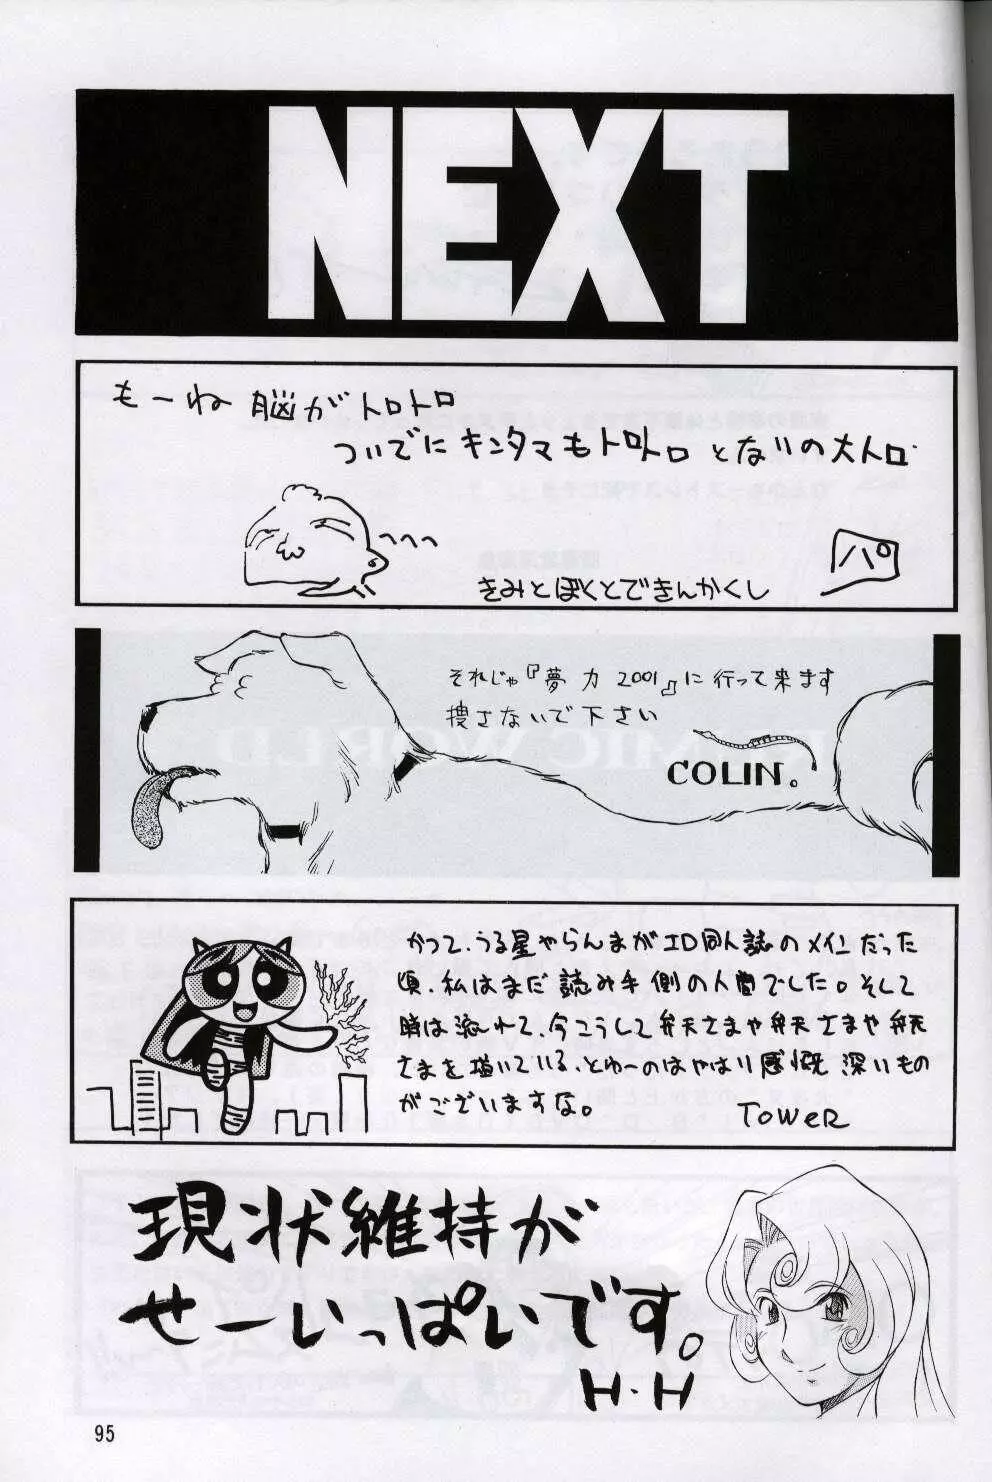 NEXT
もーね 脳がトロトロ
ついでにキンタマもトロトロ とないの大トロ
きみとぼくとできんかくし
パ
それじゃ『夢力2001』に行って来ます
捜さないで下さい
COLIN.
かつて、うる星やらんまがエロ同人誌のメインだった
頃、私はまだ読み手側の人間でした。そして
時は流れて、今こうして弁天さまや弁天さまや弁天
さまを描いている、とゆーのはやはり感慨深いもの
がございますな。
TOWER
現状維持が
せーいっぱいです。
H・H
95